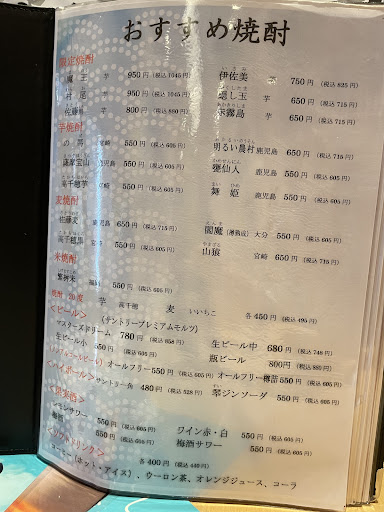 おすすめ焼酎
限定焼酎
魔王 芋 950円 (税込1045円) 伊佐美 芋 750円 (税込825円)
芋 950円 (税込1045円) 隠し玉 芋 650円 (税込715円)
佐藤 芋 800円 (税込880円) 赤霧島 芋 650円 (税込715円)
芋焼酎
宮崎 550円 (税込605円) 明るい農村 鹿児島 650円 (税込715円)
薩摩宝山 鹿児島 550円 (税込605円) 甕仙人 鹿児島 550円 (税込605円)
高千穂芋 宮崎 550円 (税込605円) 舞姫 鹿児島 550円 (税込605円)
麦焼酎
佐藤麦 鹿児島 650円 (税込715円) 閻魔 大分 550円 (税込605円)
高千穂黒 宮崎 550円 (税込605円) 山猿 宮崎 650円 (税込715円)
米焼酎
550円 (税込605円)
焼酎 芋 高千穂 麦 いいちこ 各450円 (税込495円)
<ビール> (サントリープレミアムモルツ)
マスターズドリーム 780円 (税込858円) 生ビール中 680円 (税込748円)
生ビール小 550円 (税込605円) 瓶ビール 800円 (税込880円)
オールフリー 550円 (税込605円) オールフリー樽詰 550円 (税込605円)
<ハイボール> サントリー角 480円 (税込528円) 翠ジンソーダ 550円 (税込605円)
<果実酒>
レモンサワー 550円 (税込605円) ワイン赤・白 550円 (税込605円)
550円 (税込605円) 梅酒サワー 550円 (税込605円)
<ソフトドリンク> 各400円 (税込440円)
コーヒー (ホット・アイス)、ウーロン茶、オレンジジュース、コーラ